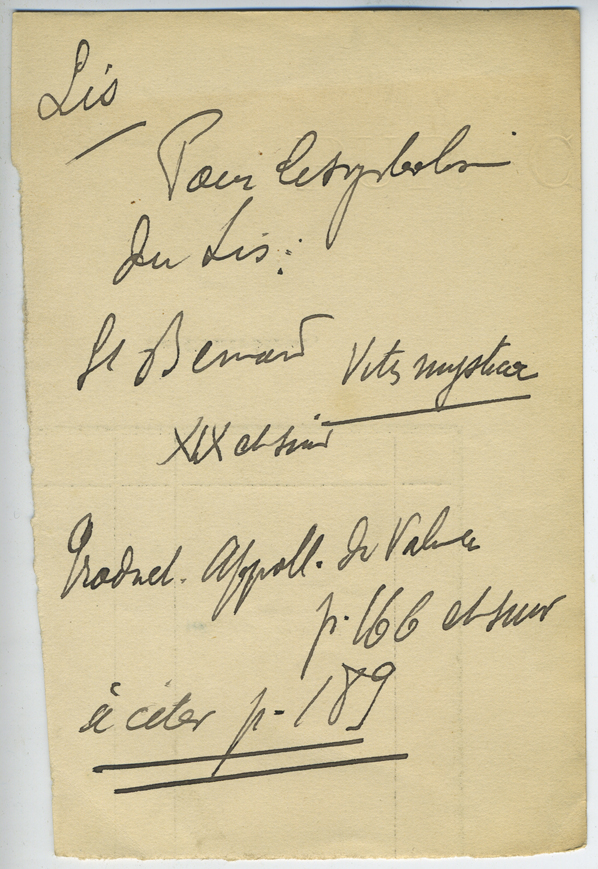 Lis
Pour le symbolism
du Lis :
St Bernard Vitis mystica
XIX et suiv
Traduct. Appoll. de Valence
p. 166 et suiv
à citer p. 189